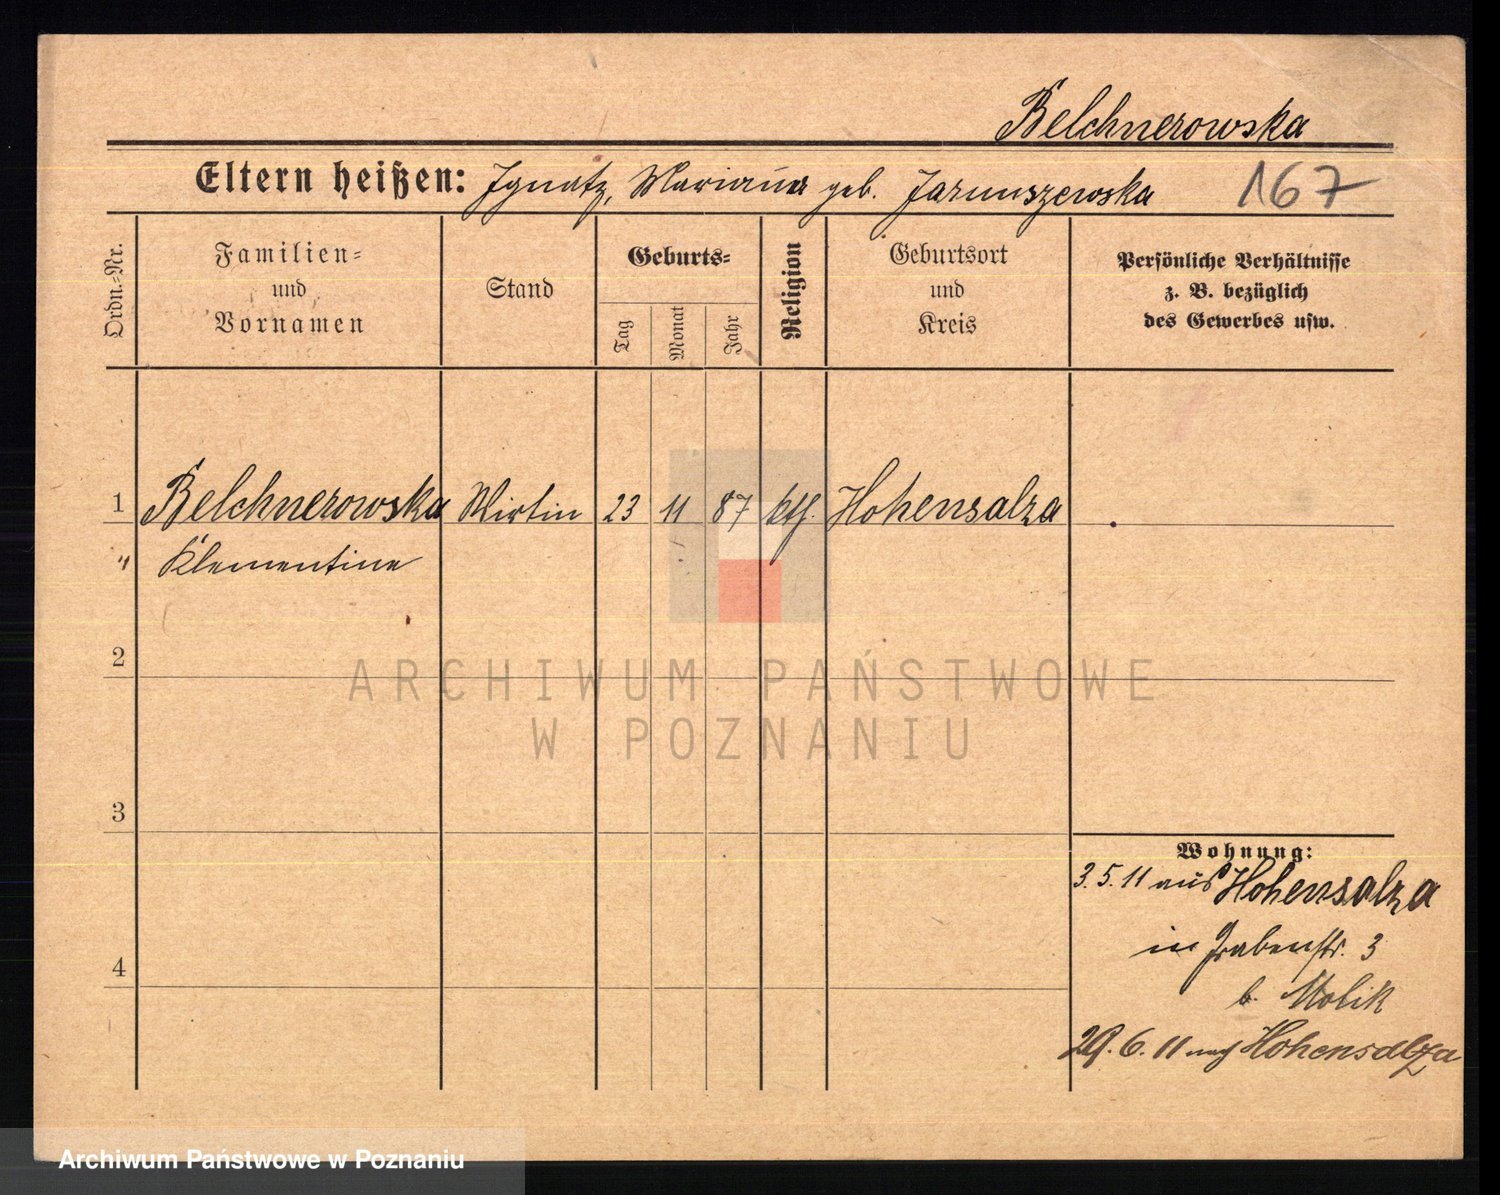 Belchnerowska
Eltern heißen: Ignatz, Mariana geb. Jaruuszewska
167
Ordn.-Nr.
Familien- und Vornamen
Stand
Geburts-
Tag
Monat
Jahr
Religion
Geburtsort und Kreis
Persönliche Verhältnisse
z. B. bezüglich
des Gewerbes usw.
1 Belchnerowska Wirtin 23 11 87 kth. Hohensalza
" Klementine
2
ARCHIWUM PAŃSTWOWE
W POZNANIU
3
Wohnung:
3.5.11 aus Hohensalza
in Grabenstr. 3
4
b. Molik
29.6.11 nach Hohensalza
Archiwum Państwowe w Poznaniu